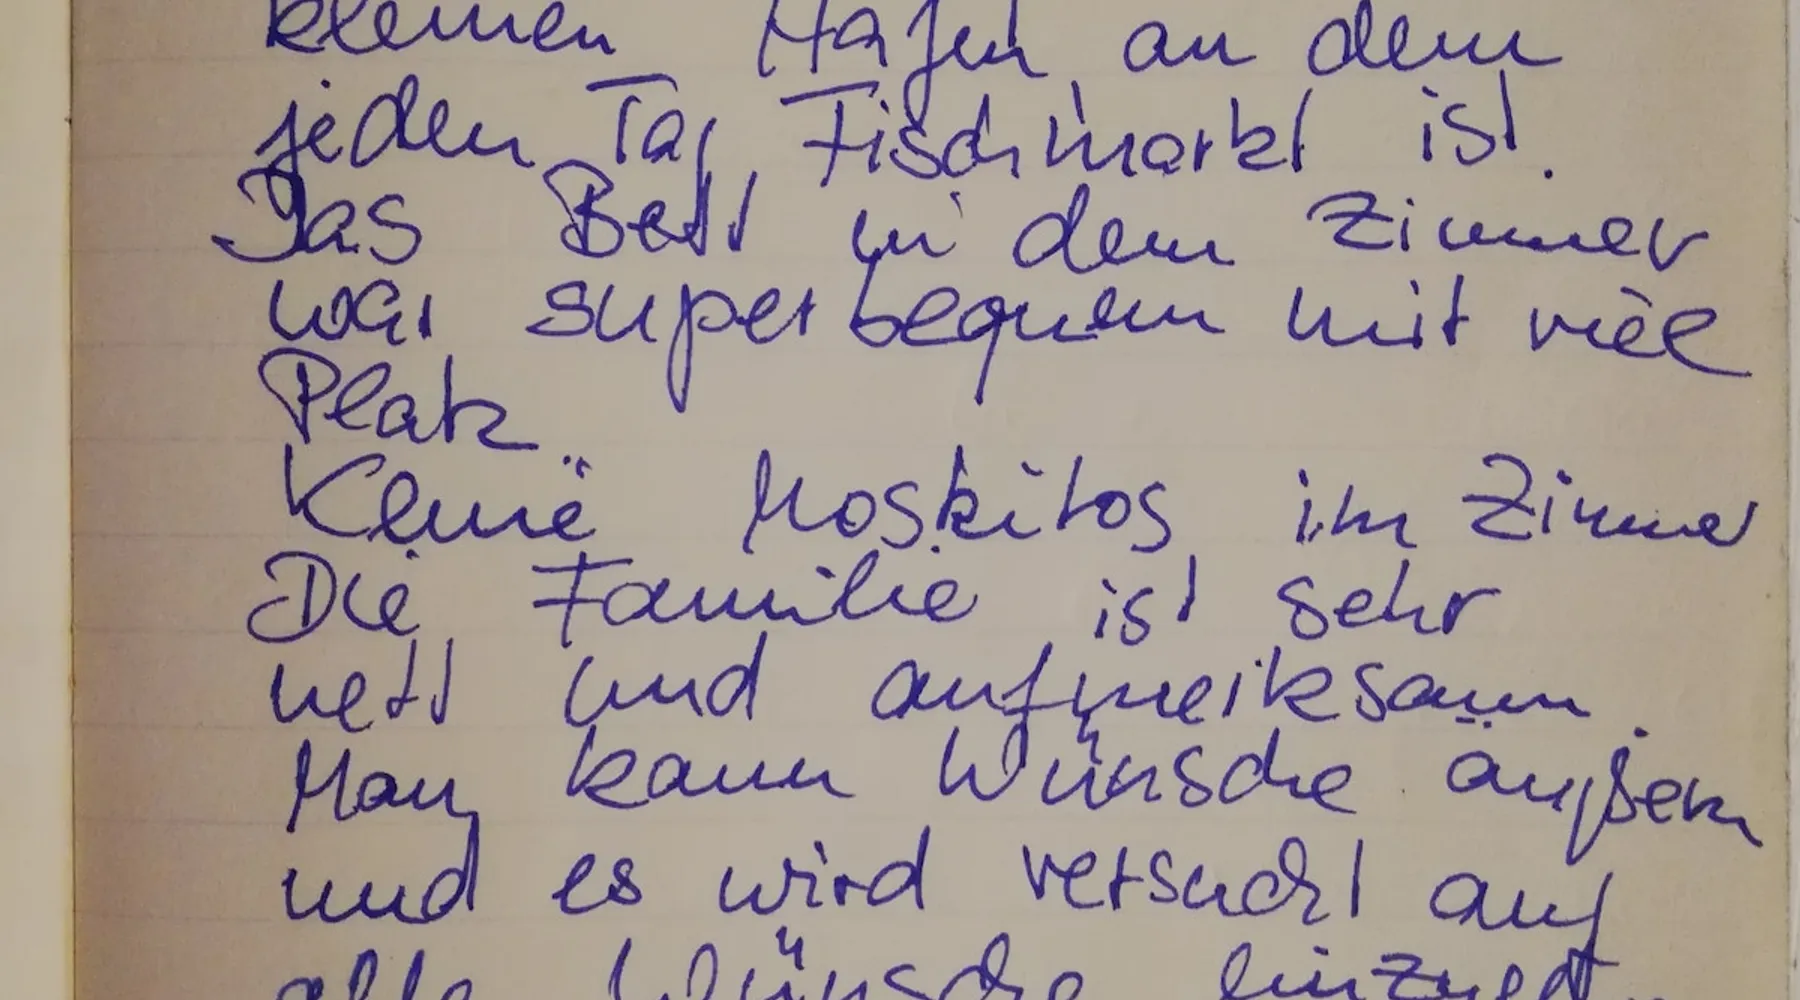 kleinen Hafen an dem
jeden Tag Fischmarkt ist.
Das Bett in dem Zimmer
war superbequem mit viel
Platz
Keine Moskitos im Zimmer
Die Familie ist sehr
nett und aufmerksam.
Man kann Wünsche äußern
und es wird versucht auf
alle Wünsche